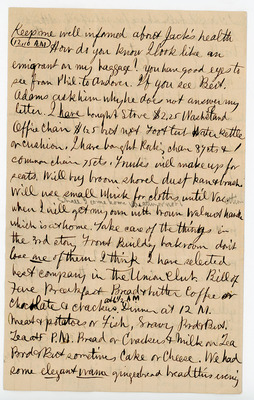 Keep me well informed about Jack's health
How do you know I look like an
emigrant on my baggage! you have good eyes to
see from Phil to Andover. If you see Bert.
Adams ask him why he does not answer my
letter. I have bought Stove $2.25 Washstand
Office Chair $1.25 but not Foot tub Water Kettle
or cushion. I have bought chair 37cts &
common chair 75cts. Trunks will make up for
seats. Will buy broom shovel dust pan & brush
Will use small whisk for cloths until
when I will get my own with brown walnut handle
which is at home. Take care of the things in
the 3rd story Front Building back room dont
lose one of them I think I have selected
best company in the Union Club. Bill of
Fare Breakfast Bread & butter Coffee or
Chocolate & crackers Dinner at 12 M.
Meat & potatoes or Fish, Gravy, Brd & But.
Tea at P.M. Bread or Crackers & Milk or Tea
Brd & But sometimes Cake or Cheese. We had
some elegant warm gingerbread bread this evening